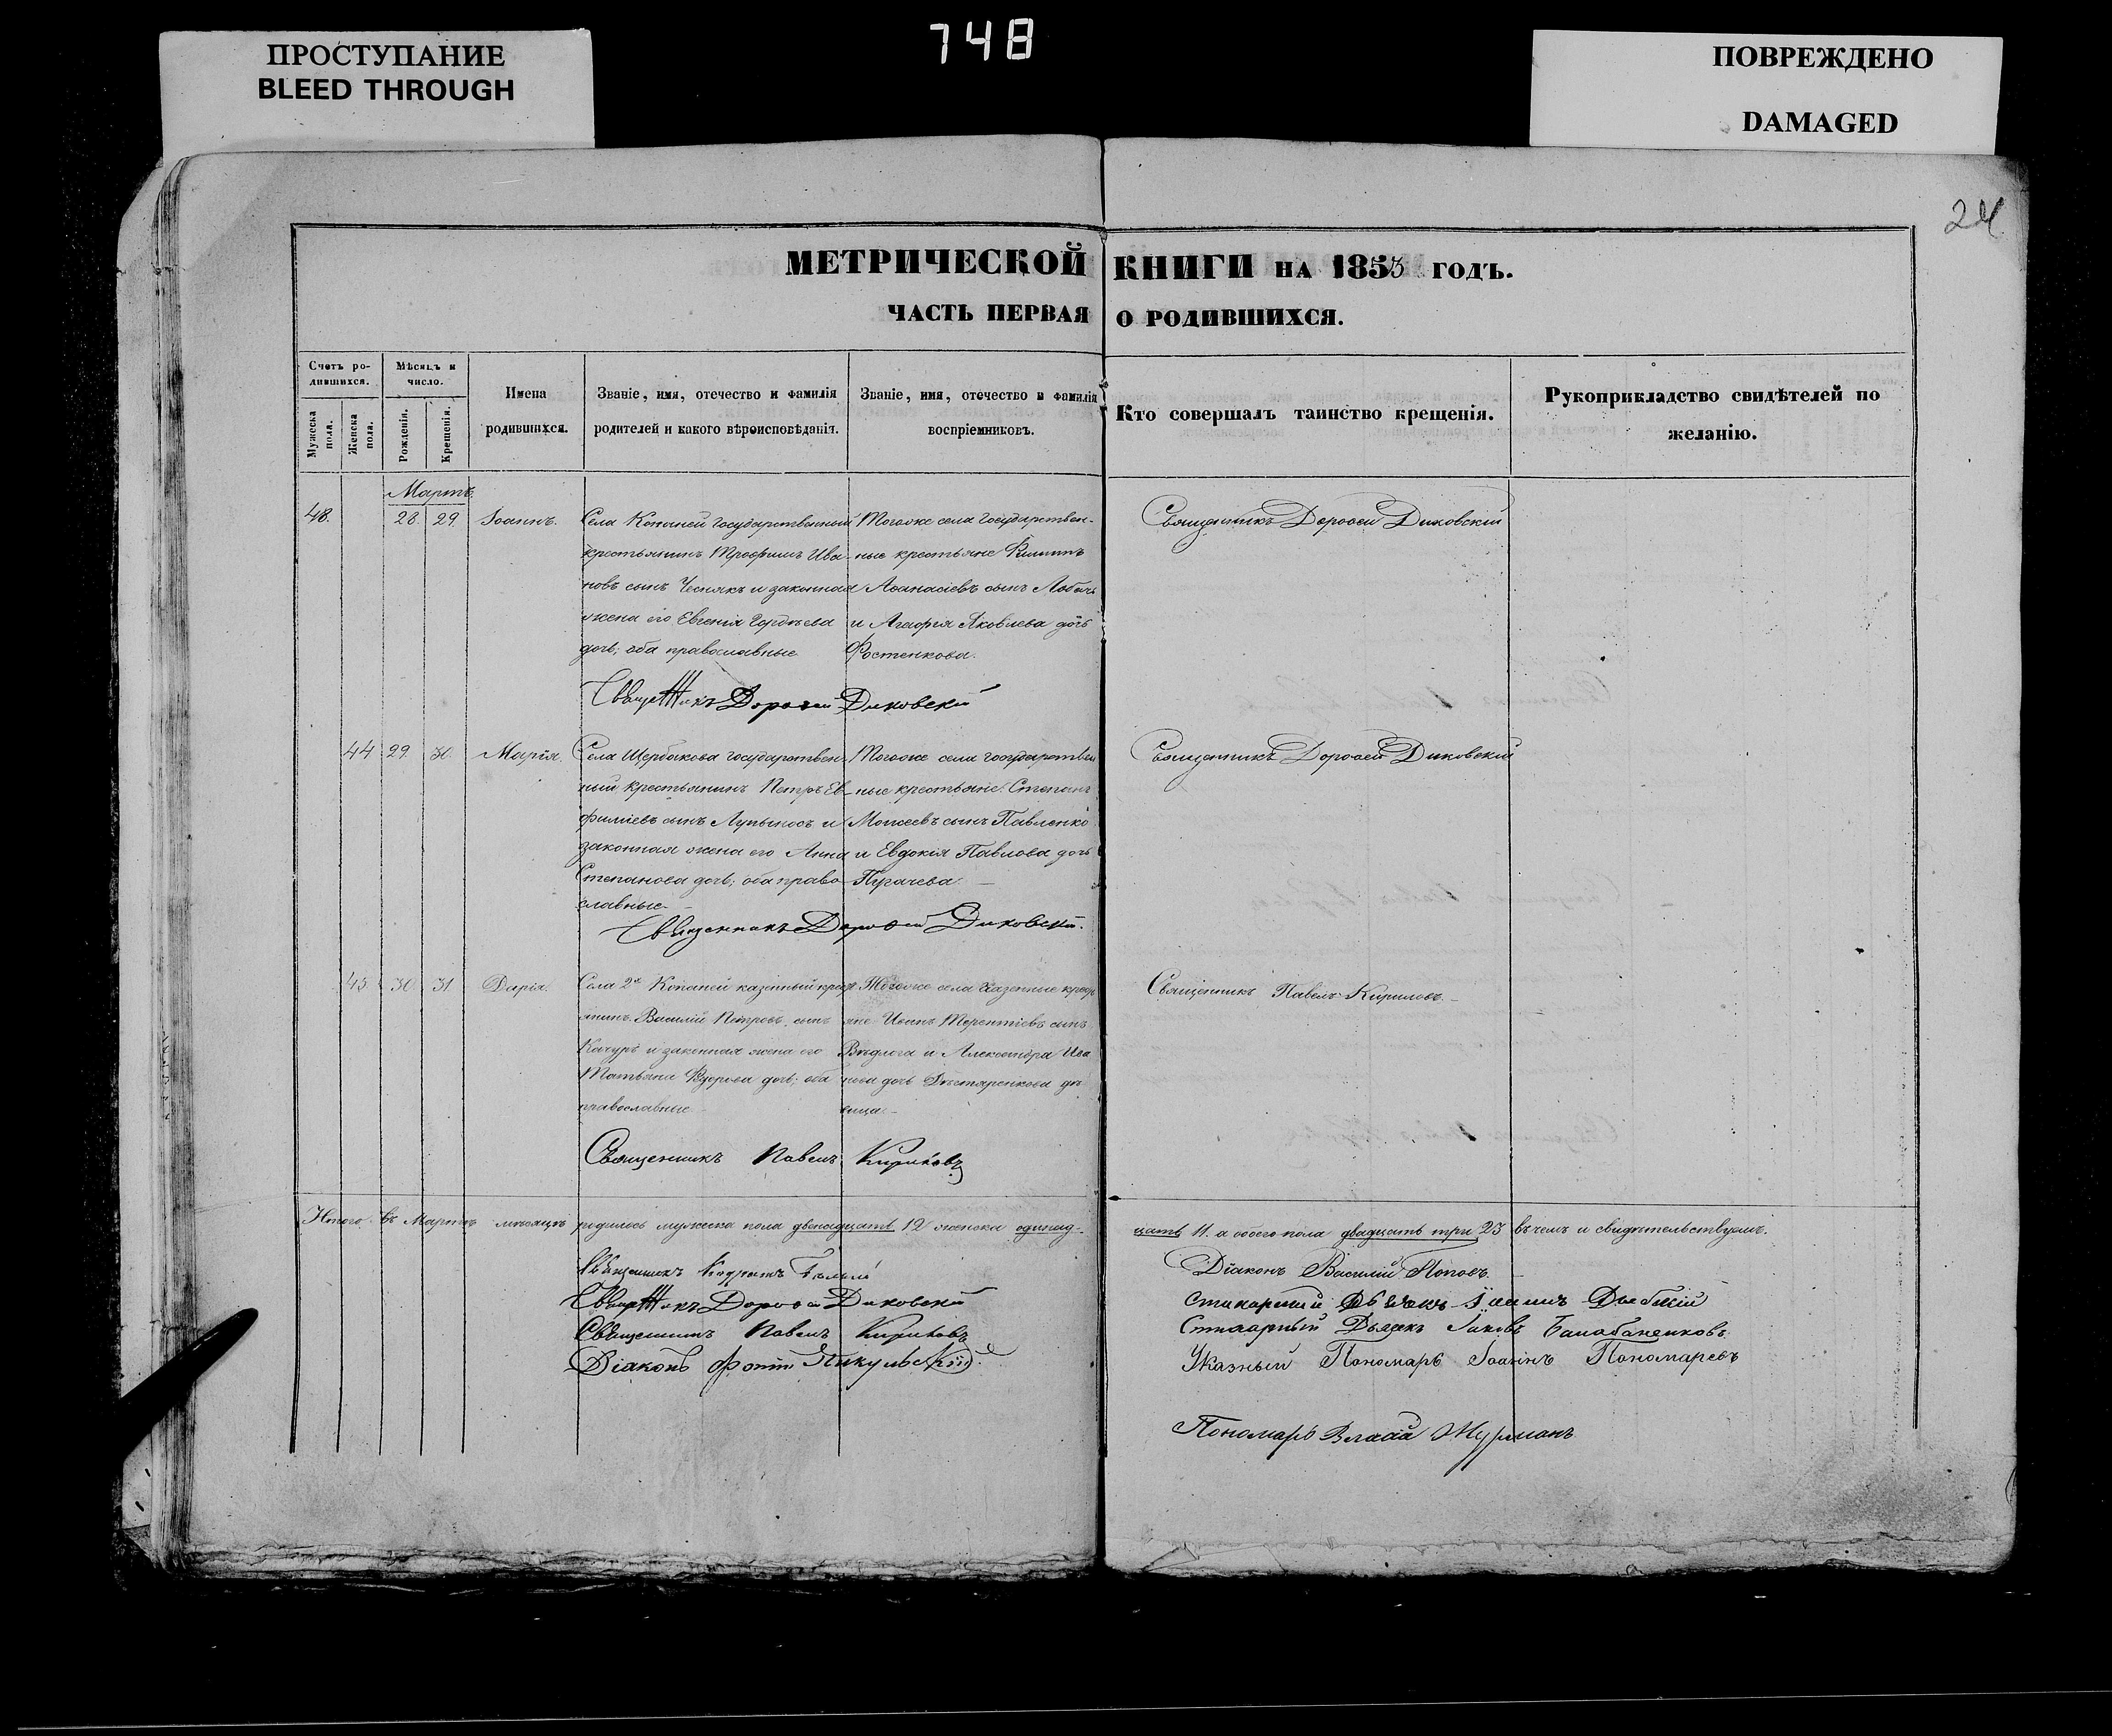 ПРОСТУПАНИЕ
BLEED THROUGH
748
ПОВРЕЖДЕНО
DAMAGED
24
МЕТРИЧЕСКОЙ КНИГИ НА 1853 ГОДЪ.
ЧАСТЬ ПЕРВАЯ О РОДИВШИХСЯ.
Счетъ ро-
дившихся.
Мужеска
пола.
Женска
пола.
Мѣсяцъ и
число.
Рожденія.
Крещенія.
Имена
родившихся.
Званіе, имя, отечество и фамилія
родителей и какого вѣроисповѣданія.
Званіе, имя, отечество и фамилія
воспріемниковъ.
Кто совершалъ таинство крещенія.
Рукоприкладство свидѣтелей по
желанію.
Мартъ
48. 28. 29. Іоаннъ.
Села Копаней государственный
крестьянинъ Трофимъ Ива-
новъ сынъ Чеснякъ и законная
жена его Евгенія Гордѣева
дочь; оба православные
Тогоже села государствен-
ные крестьяне Филиппъ
Аѳанасіевъ сынъ Лобачь
и Агафія Яковлева дочь
Фостенкова.
Священникъ Дороѳей Диковскій
Священникъ Дороѳей Диковскій
44 29. 30. Марія.
Села Щербакова государствен-
ный крестьянинъ Петръ Ев-
фиміевъ сынъ Лупыносъ и
законная жена его Анна
Степанова дочь; оба право-
славные.
Тогоже села государствен
ные крестьяне: Степанъ
Моисеевъ сынъ Павленко
и Евдокія Павлова дочь
Пугачева.
Священникъ Дороѳей Диковскій.
Священникъ Дороѳей Диковскій
45 30. 31 Дарія.
Села 2х Копаней казенный крест
янинъ Василій Петровъ сынъ
Качуръ и законная жена его
Татьяна дочь; оба
православные
Тогоже села казенные крест
яне Иванъ Терентіевъ сынъ
и Александра Ива
нова дочь дѣ
вица
Священникъ Павелъ Кириловъ
Священникъ Павелъ Кириловъ.
Итого въ Мартѣ мѣсяцѣ родилось мужеска пола двенадцать 12 женска одинад-
цать 11. а обоего пола двадцать три 23 въ чемъ и свидѣтельствуемъ.
Священникъ
Священникъ Дороѳей Диковскій
Священникъ Павелъ Кириловъ
Діаконъ Фотій Пикульскій.
Діаконъ Василій Поповъ.
Стихарный Дьячекъ Іоаннъ
Стихарный Дьячекъ Іаковъ Балабаненковъ
Указный Пономарь Іоаннъ Пономаревъ
Пономарь Власій Журманъ